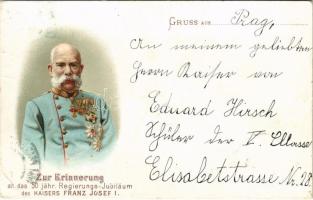 GRUSS aus Prag,
An meinem geliebten
Herrn Kaiser von
Eduard Hirsch
Schüler der V. Classe
Elisabetstrasse Nr. 28.
Zur Erinnerung
an das 50 jähr. Regierungs-Jubiläum
des KAISERS FRANZ JOSEF I.